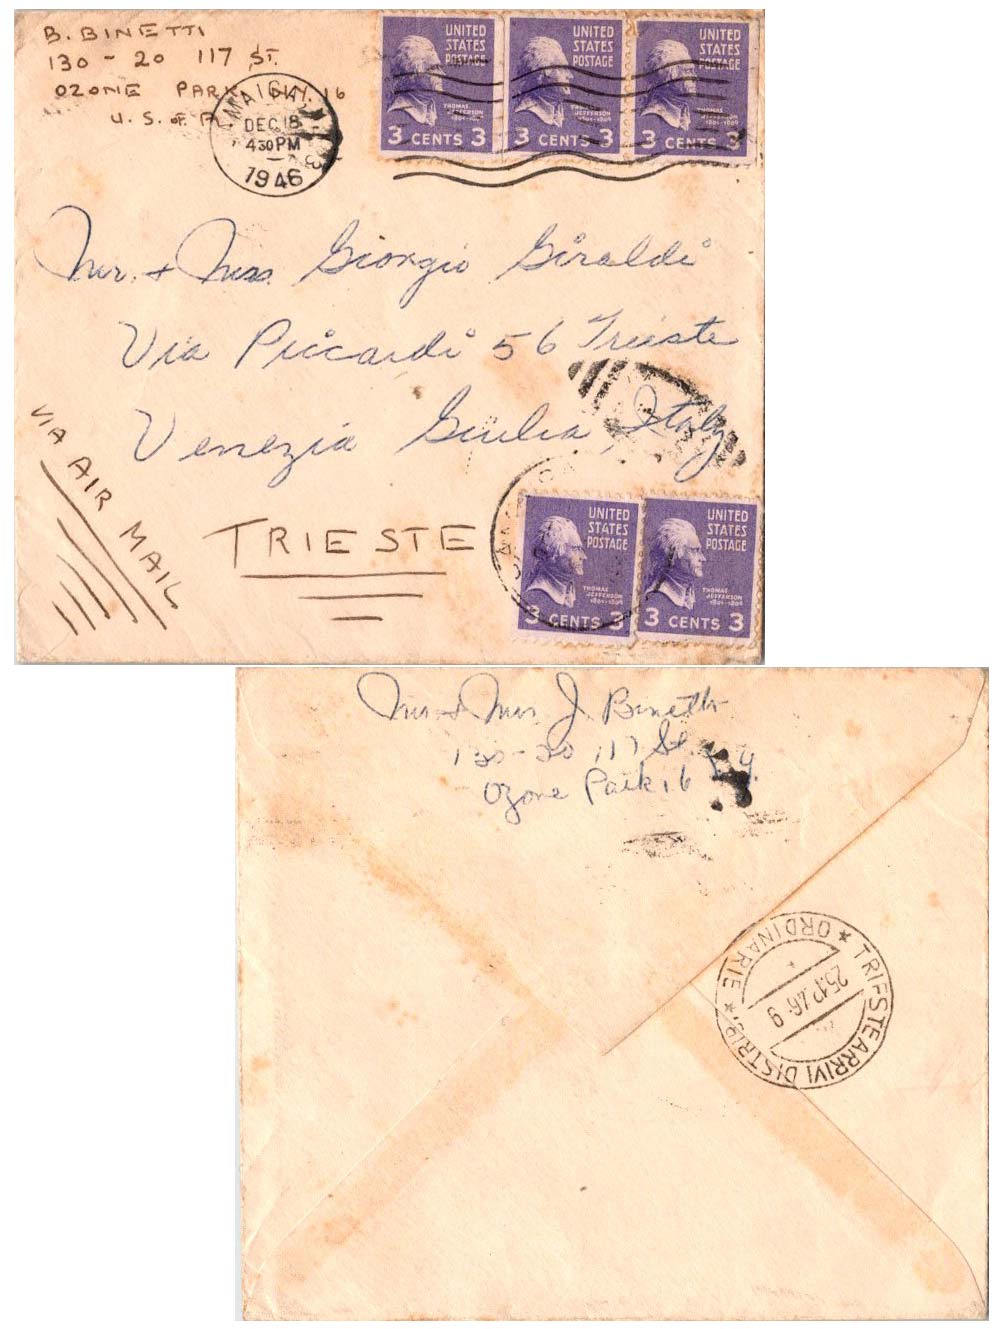 B. BINETTI
130 - 20 117 ST.
OZONE PARK 16
U. S. of A.
JAMAICA
DEC 18
4 30 PM
1946
UNITED STATES POSTAGE
THOMAS JEFFERSON
1801-1809
3 CENTS 3
UNITED STATES POSTAGE
THOMAS JEFFERSON
1801-1809
3 CENTS 3
UNITED STATES POSTAGE
THOMAS JEFFERSON
1801-1809
3 CENTS 3
Mr. + Mrs. Giorgio Giraldi
Via Piccardi 56 Trieste
Venezia Giulia, Italy
VIA AIR MAIL
TRIESTE
UNITED STATES POSTAGE
THOMAS JEFFERSON
1801-1809
3 CENTS 3
UNITED STATES POSTAGE
THOMAS JEFFERSON
1801-1809
3 CENTS 3
Mr & Mrs J. Binetti
130-20 117 St.
Ozone Park 16 N.Y.
TRIESTE ARRIVI DISTRIB.
* ORDINARIE *
25.12.46.9